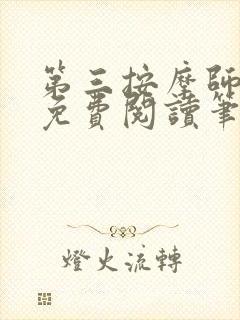 第三按摩師
免費閱讀筆
燈火流轉